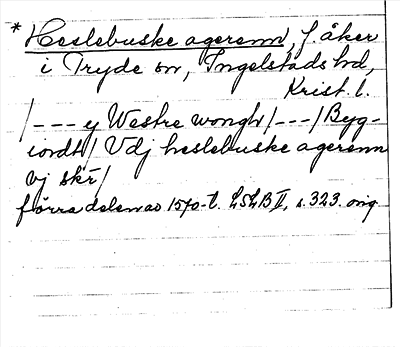 * Heslebuske agerenn, f. åker
i Tryde sn, Ingelstads hd,
Krist. l.
/--- y Westre wongh /---/ Byg-
iordt / Vdj heslebuske agerenn
vj skr /
förra delen av 1570-t. LSLB II, s. 323. orig.